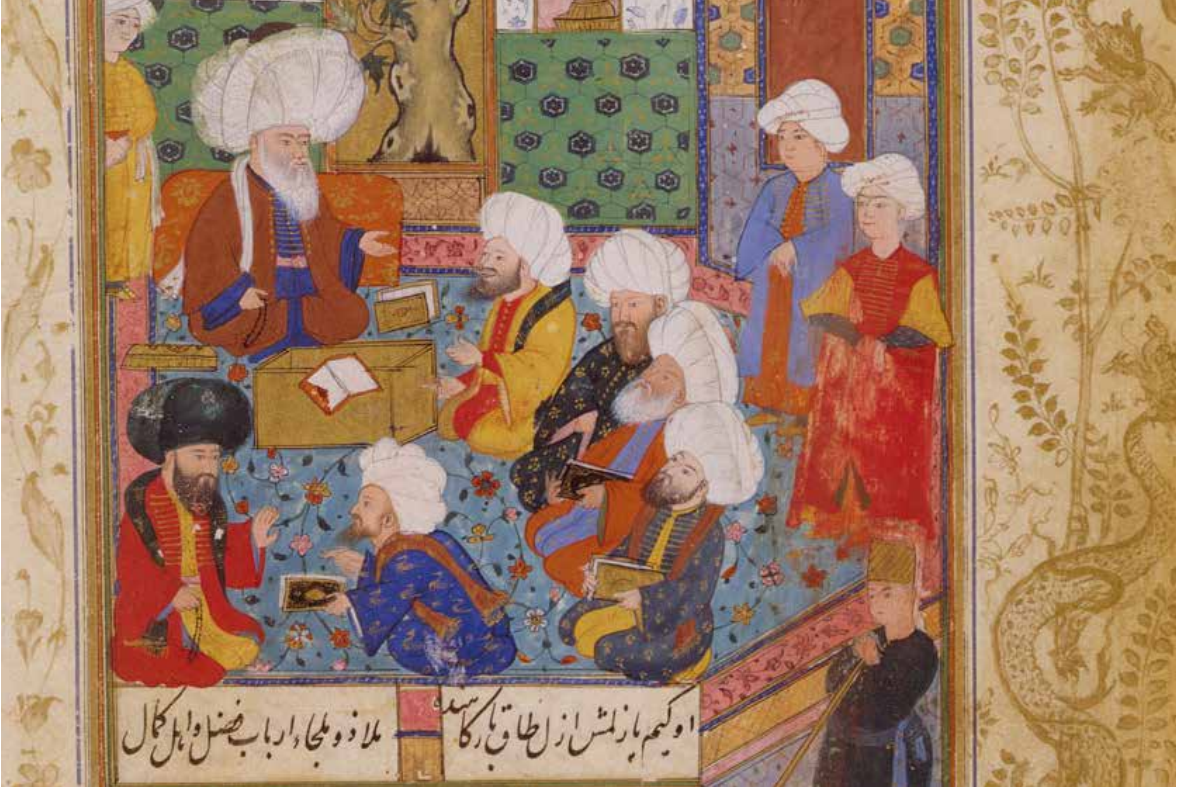 اوكيم يازلمش ازل طاق باركاسنده
ملاذ و ملجاء ارباب فضل و اهل كمال